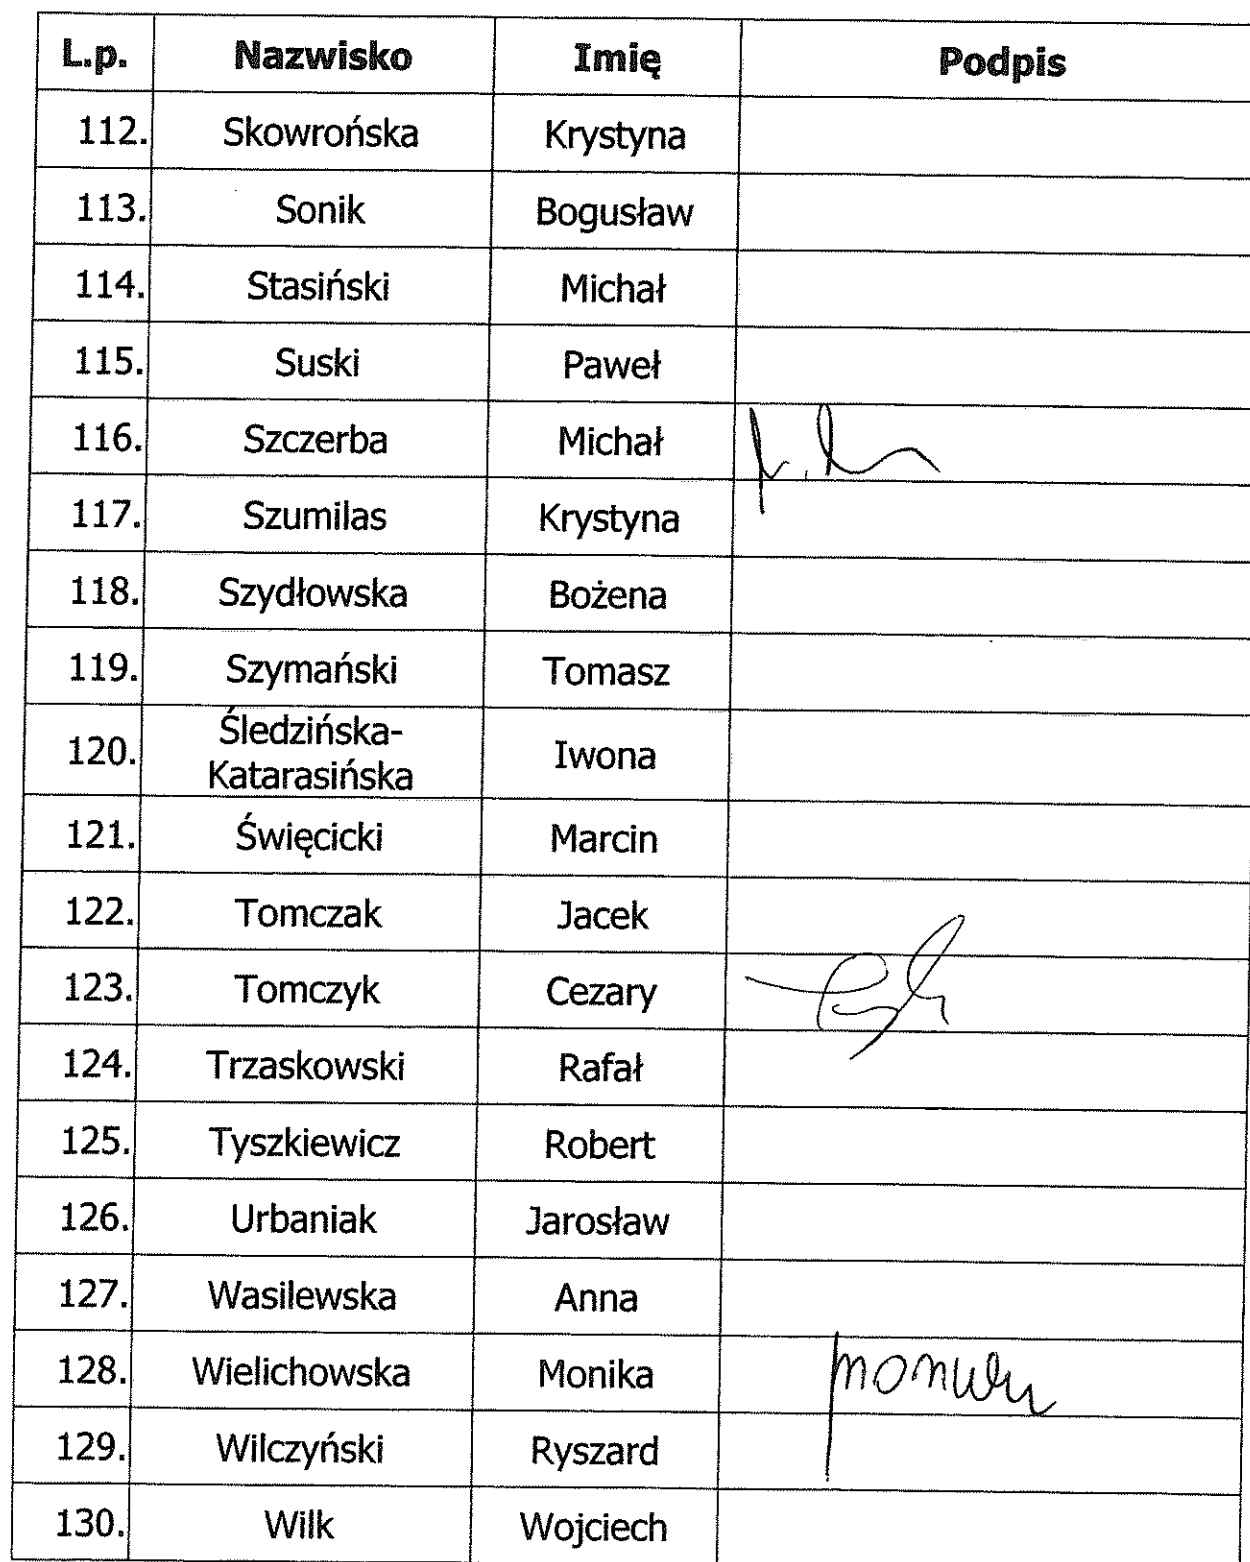 L.p. Nazwisko Imię Podpis
112. Skowrońska Krystyna
113. Sonik Bogusław
114. Stasiński Michał
115. Suski Paweł
116. Szczerba Michał
117. Szumilas Krystyna
118. Szydłowska Bożena
119. Szymański Tomasz
120. Śledzińska-
Katarasińska Iwona
121. Święcicki Marcin
122. Tomczak Jacek
123. Tomczyk Cezary
124. Trzaskowski Rafał
125. Tyszkiewicz Robert
126. Urbaniak Jarosław
127. Wasilewska Anna
128. Wielichowska Monika
129. Wilczyński Ryszard
130. Wilk Wojciech